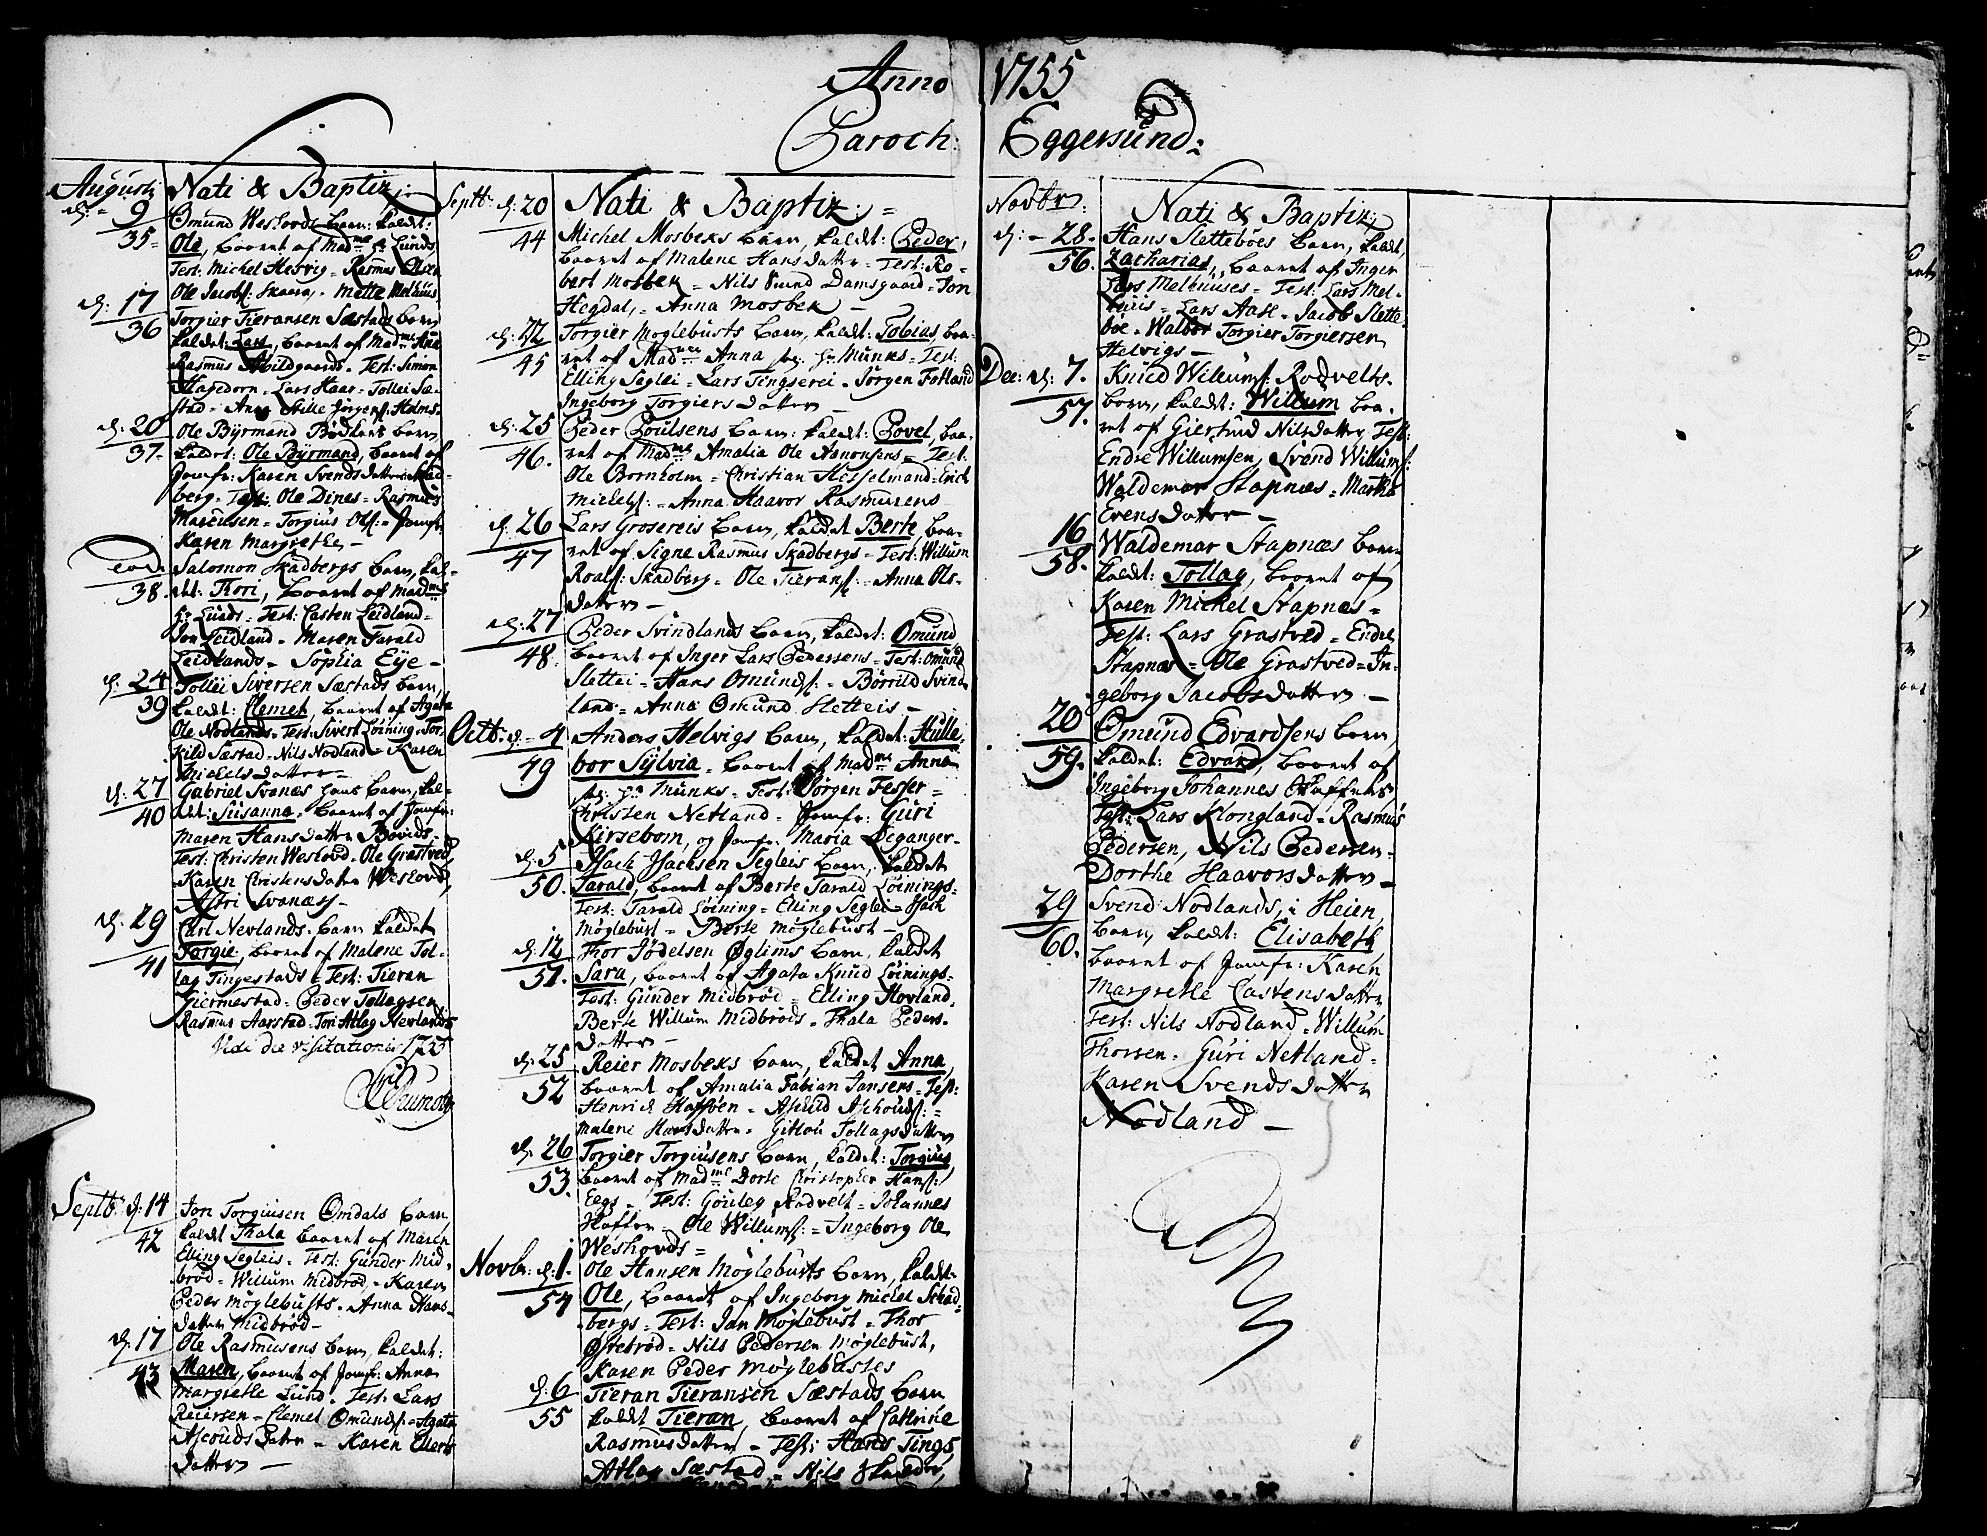 Anno 1755
Paroch: Eggersund:
Augusti Nati & Baptiz:
d: 9 Omund Weshovds barn: kaldet:
35 Ole, baaret af Madme Hr Lunds
Test: Michel Hervig - Rasmus
Ole Jacobs: Skaara, - Mette Melhuus
d: 17
36 Torgier Tieransen Sæstads barn
kaldet: Lars, baaret af Madme Ane
Rasmus Abildgaards - Test: Simon
Hagedorn - Lars Haar - Tollei Sæ-
stad - Anna Stille Jørgens: Holms -
d: 20 Ole Byrmand Bødkers barn
37 kaldet: Ole Byrmand, baaret af
Jomfr: Karen Svends datter Skad-
berg - Test: Ole Dines - Rasmus
Marcusen - Torgius Ols: - Jomfr:
Karen Margrethe -
Eod: Salomon Skadbergs barn, kal-
38. det: Thori, baaret af Madme
Hr Lunds - Test: Casten Leidland -
Jon Leidland - Maren Tarald
Leidlands - Sophia Eye -
d: 24 Tollei Siversen Sæstads barn,
39 kaldet: Clemet, baaret af Agata
Ole Nodlands - Test: Sivert Løining - Tor-
kild Sæstad - Nils Nodland - Karen
Michelsdatter -
d: 27 Gabriel Svanæs barn, kal-
40 det: Susanna - baaret af Jomfr:
Maren Hans datter Bovids -
Test: Christen Weshovd - Ole Grastved
Karen Christens datter Weshovd,
Astri Svanæs -
d: 29 Carl Nevlands barn kaldet
41 Torgie, baaret af Malene Tol-
lag Tingestads - Test: Tieran
Giermestad - Peder Tollagsen
Rasmus Aarstad - Tori Atlag Nevlands
Vidi die visitationis 1755
Septbr d: 14 Jon Torgiusen Omdals barn
42 kaldet Thala baaret af Maren
Elling Segleis - Test: Gunder Mid-
brød - Willum Midbrød - Karen
Peder Møglebusts - Anna Hans-
datter Midbrød -
d: 17 Ole Rasmusens barn, kaldet:
43 Maren, baaret af Jomfr: Anna
Margrethe Lund - Test: Lars
Reiersen - Clemet Omunds: - Agata
Ascouds datter - Karen Ellerts
datter -
Septbr d: 20 Nati & Baptiz: =
44 Michel Mosbeks barn, kaldet: Peder,
baaret af Malene Hans datter - Test: Ro-
bert Mosbek - Nils Sund Damsgaard - Jon
Hegdal, - Anna Mosbek -
d: 22 Torgier Møglebusts barn, kaldet: Tobias, baa-
45 ret af Madme Anna Hr Munks - Test:
Elling Seglei - Lars Tingserei - Jørgen Fotland
Ingeborg Torgiers datter -
d: 25 Peder Poulsens barn: kaldet: Povel, baa-
46. ret af Madme Amalia Ole Aanonsens - Test.
Ole Bornholm - Christian Hesselmand - Erich
Michels: - Anna Haavor Rasmusens
d: 26 Lars Grosereis barn, kaldet Berte, baa-
47 ret af Signe Rasmus Skadbergs - Test: Willum
Roals: Skadberg - Ole Tierans: - Anna Ols-
datter -
d: 27 Peder Svindlands barn, kaldet: Omund
48 baaret af Inger Lars Pedersens - Test: Omund
Slettei - Hans Omunds: - Børrild Svind-
land - Anna Omund Sletteis -
Octb: d: 4 Anders Helvigs barn, kaldet: Hulle-
49 bor Sylvia - baaret af Madme Anna
Hr Munks - Test: Jørgen Fesser -
Christen Netland - Jomfr: Guri
Kirsebom, og Jomfr: Maria Deganger -
d: 5 Isach Isachsen Segleis barn, kaldet
50. Tarald, baaret af Berte Tarald Løinings -
Test: Tarald Løining - Elling Seglei - Isach
Møglebust - Berte Møglebust -
d: 12 Thor Jødelsen Øglims barn, kaldet
51. Sara, baaret af Agata Knud Løinings -
Test: Gunder Midbrød - Elling Hovland,
Berte Willum Midbrøds - Thala Peders-
datter -
d: 25 Reier Mosbeks barn, kaldet Anna,
52 baaret af Amalia Fabian Jansens - Test:
Henrich Hafsøen - Ascild Aschouds: -
Malene Hansdatter - Gitlou Tollagsdatter
d: 26 Torgier Torgiusens barn, kaldet: Torgius,
53. baaret af Madme Dorte Christopher Hans:
Eegs - Test: Gouleg Rodvelt - Johannes
Hafter - Ole Willums: - Ingeborg Ole
Weshovds -
Novbr: d: 1. Ole Hansen Møglebusts barn, kaldet -
54 Ole, baaret af Ingeborg Michel Schad-
bergs - Test: Jan Møglebust - Thor
Østebrød - Nils Pedersen Møglebust,
Karen Peder Møglebustes
d: 6 Tieran Tieransen Sæstads barn
55 kaldet Tieran, baaret af Cathrine
Rasmusdatter - Test: Hans Tings,
Atlag Sæstad - Nils
Novbr: Nati & Baptiz:
d: - 28. Hans Slettebøes barn, kaldet,
56. Zacharias, baaret af Inger
Lars Melhuuses - Test: Lars Mel-
huus - Lars Aase - Jacob Slette-
bøe - Walbor Torgier Torgiersen
Helvigs -
Dec: d: 7. Knud Willums: Rodvelts
57. barn, kaldet: Willum baa-
ret af Giertrud Nilsdatter, Test:
Endre Willumsen, Svend Willums:
Waldemar Stapnæs - Martha
Evensdatter -
16 Waldemar Stapnæs barn
58. kaldet: Tollag, baaret af
Karen Michel Stapnæs -
Test: Lars Grastved - Endre
Stapnæs - Ole Grastved - In-
geborg Jacobsdatter -
20 Omund Edvardsens barn,
59. kaldet: Edvard, baaret af
Ingeborg Johannes
Test: Lars Klongland - Rasmus
Pedersen, Nils Pedersen -
Dorthe Haavorsdatter -
29 Svend Nodlands, i Heien,
60. barn, kaldet: Elisabeth
baaret af Jomfr: Karen
Margrethe Castensdatter
Test: Nils Nodland - Willum
Thorsen - Guri Netland -
Karen Svendsdatter
Nodland -